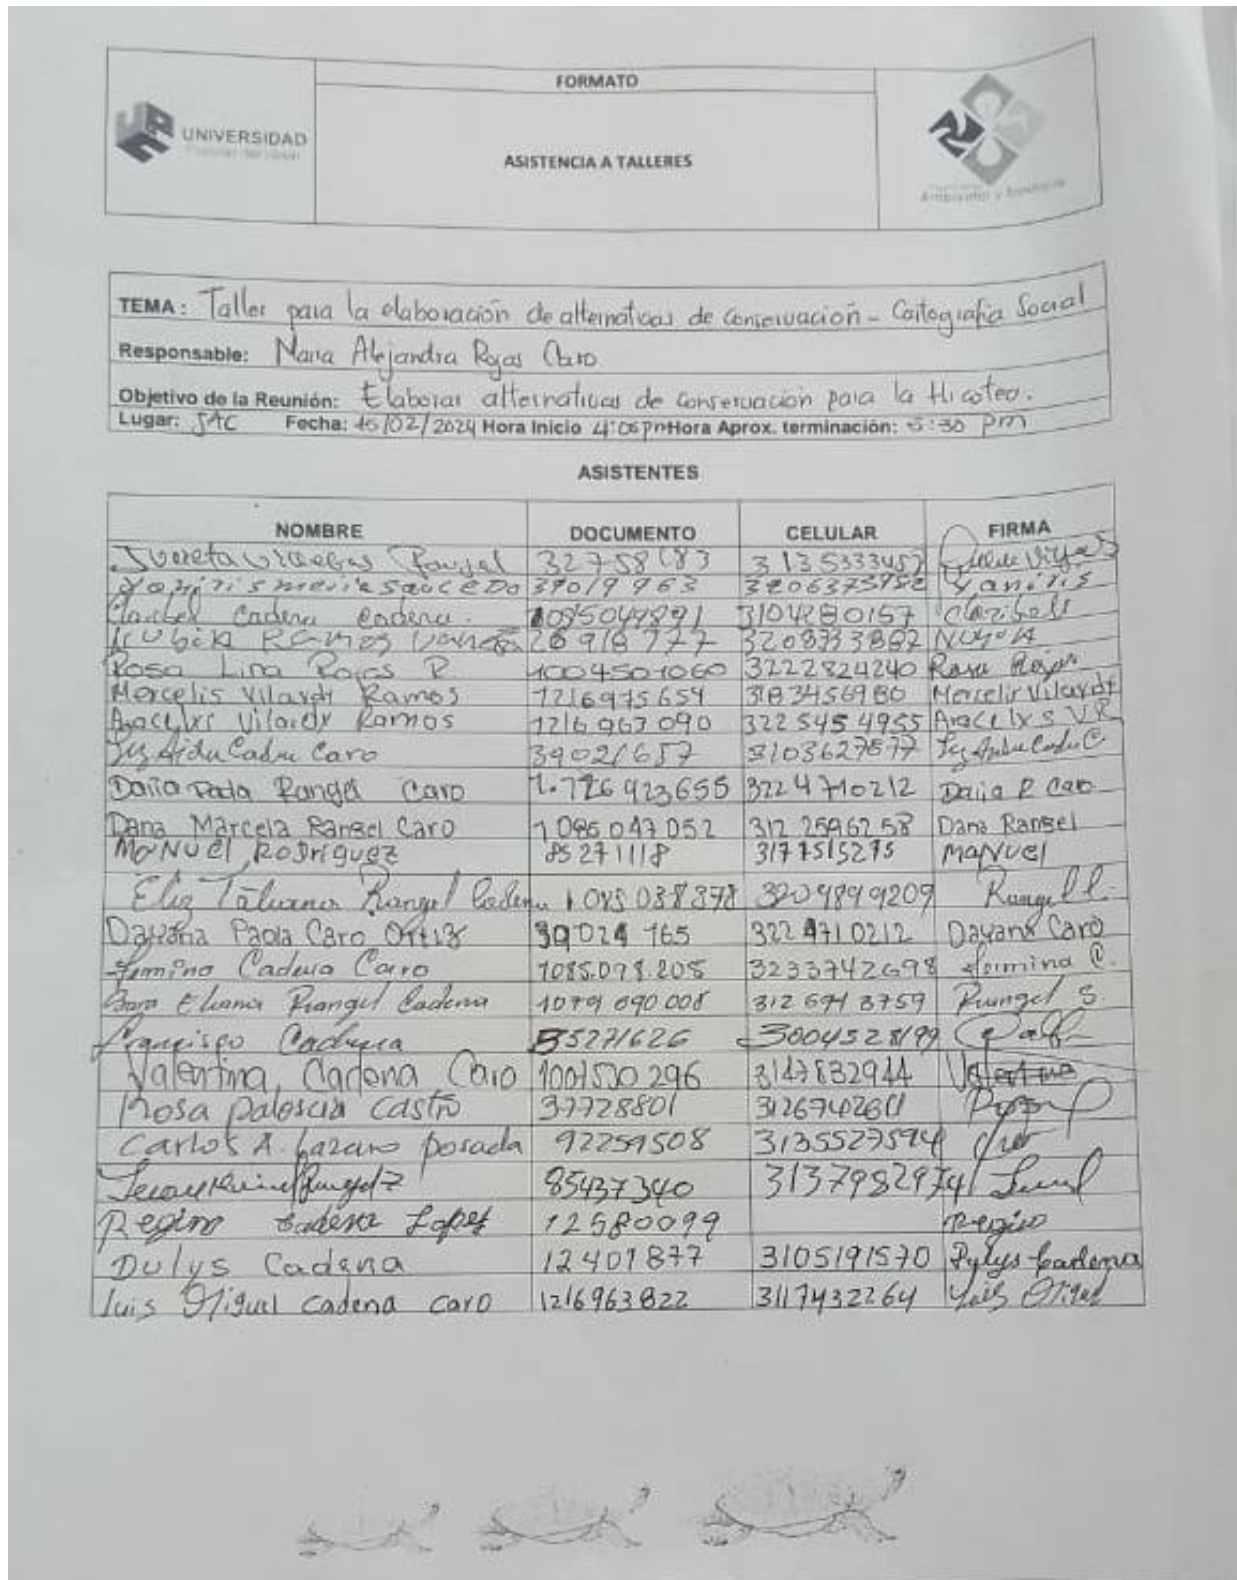 FORMATO
UNIVERSIDAD
ASISTENCIA A TALLERES
TEMA: Taller para la elaboración de alternativas de conservación - Cartografia Social
Responsable: Maria Alejandra Rojas Claro
Objetivo de la Reunión: Elaborar alternativas de conservación para la Hicotea.
Lugar: SAC Fecha: 15/02/2024 Hora Inicio 4:05 pm Hora Aprox. terminación: 5:30 pm
ASISTENTES
NOMBRE DOCUMENTO CELULAR FIRMA
Rangel 32758183 3135333457
Saucedo 39019963 Yaniris
Cadena Cadena. 1085049891 3104280157 Claribel
Ramos 26918777 3208333887
Rosa Lina Rojas R. 1004501060 3222824240 Rosa Rojas
Mercelis Vilardy Ramos 1216975654 3183456980 Mercelis Vilardy
Aracelys Vilardy Ramos 1216963090 322 545 4955 Aracelys V R
Caro 39021657 3103627577
Daria Paola Rangel Caro 1.726923655 3224710212 Daria R Caro
Dana Marcela Rangel Caro 1085047052 312 2596258 Dana Rangel
Manuel Rodriguez 85271118 3177515275 Manuel
Tatiana Rangel Cadena 1085038878 3204899209 Rangel C.
Dayana Paola Caro Ortiz 39024165 3224710212 Dayana Caro
Fermina Cadena Caro 1085.098.205 3233742698 Fermina C.
Sara Eliana Rangel Cadena 1079690008 312 694 3759 Rangel S.
Francisco Cadena 85271626 3004528199
Valentina Cadena Caro 1001530296 3147832944 Valentina
Rosa palescia castro 37728801 3126742611
Carlos A. Lazaro posada 92259508 3135527594
85437340 3137982974
Regino Cadena Lopez 12580099 Regino
Dulys Cadena 12401877 3105191570 Dulys Cadena
Luis Miguel cadena caro 1216963822 3117432264 Luis Miguel